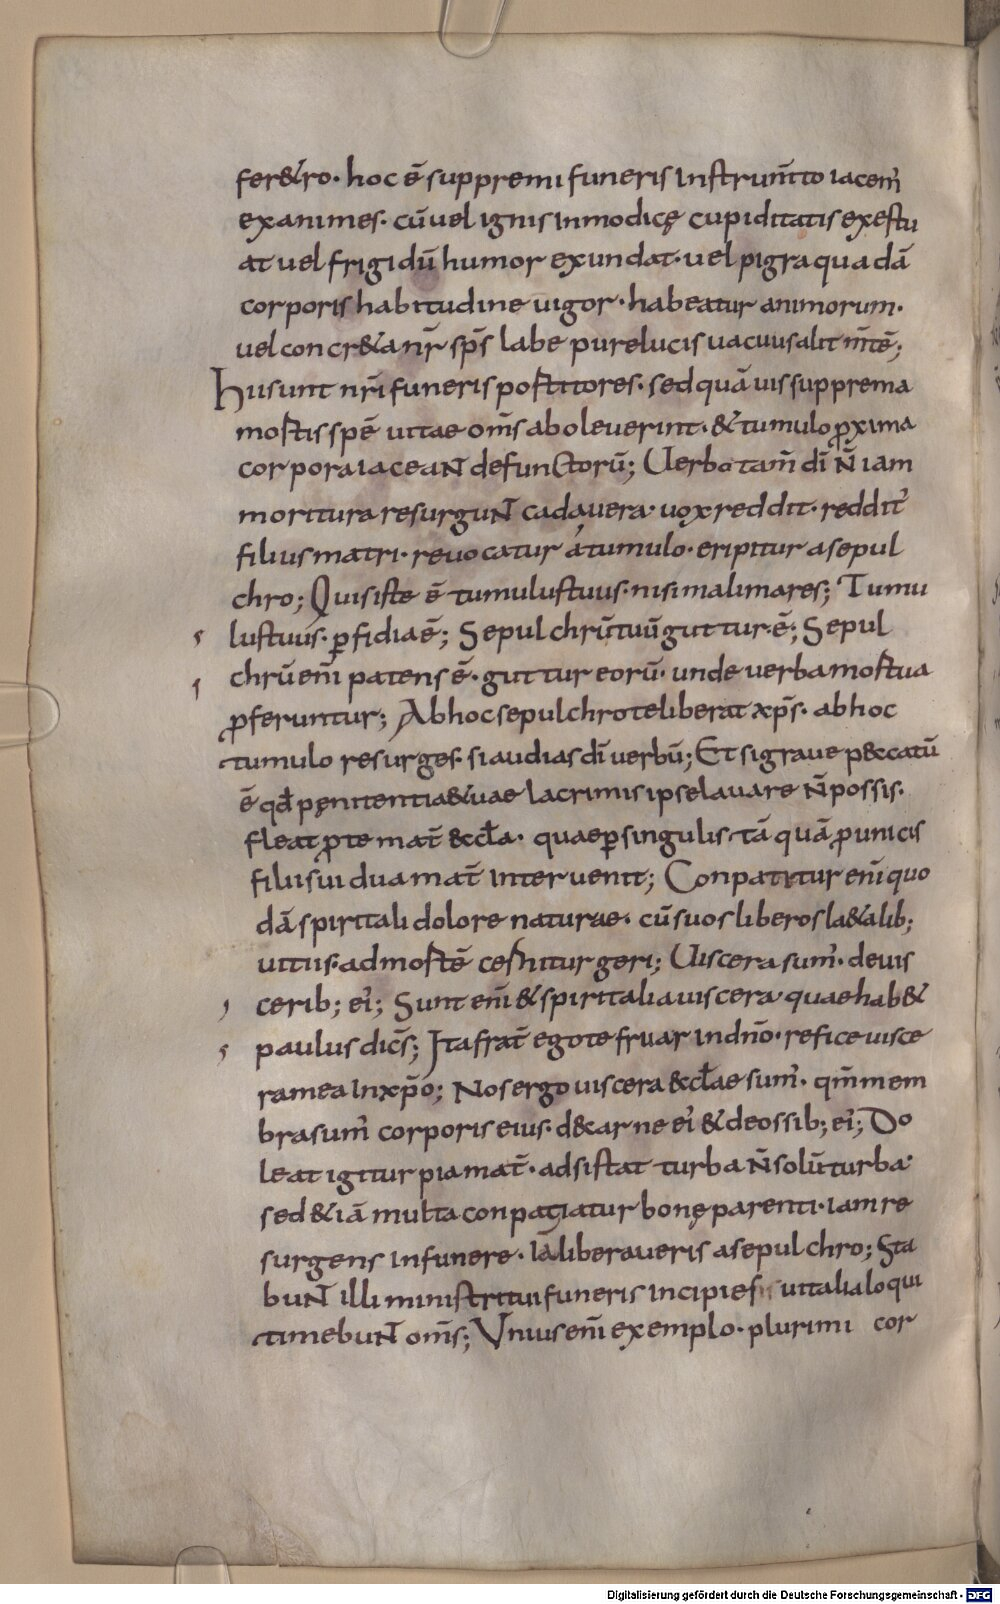 fer&ro· hoc ē suppremi funeris instrum̄to iacem̄
exanimes· cū uel ignis inmodicę cupiditatis exestu
at uel frigidū humor exundat· uel pigra quadā
corporis habitudine uigor· habeatur animorum·
uel concr&a nr̄ sp̄s labe pure lucis uacuus alit m̄tē;
Hii sunt nr̄i funeris postitores· sed quāuis supprema
mostis spē uitae om̄s aboleuerint· & tumulo ꝓxima
corpora iaceant defunctorū; Uerbo tam̄ dī n̄ iam
moritura resurgunt cadauera· uox reddit· reddit᷒
filius matri· reuocatur á tumulo· eripitur a sepul
chro; Quis iste ē tumulus tuus· nisi mali mares; Tumu
lus tuus· ꝑfidia ē; Sepulchrū tuū guttur ē; Sepul
chrū enī patens ē· guttur eorū· unde uerba mostua
ꝓferuntur; Ab hoc sepulchro te liberat xp̄s· ab hoc
tumulo resurges· si audias dī uerbū; Et si graue p&catū
ē qđ pęnitentiae tuae lacrimis ipse lauare n̄ possis·
fleat ꝓ te mat̄ &cƚa· quae ꝑ singulis tāquā ꝓ unicis
filiis uidua mat̄ interuenit; Conpatitur enī quo
dā spiritali dolore naturae· cū suos liberos la&alib;
uitiis· ad mostē cernitur geri; Uiscera sum᷒· de uis
cerib; ei᷒; Sunt enī & spiritalia uiscera· quae hab&
paulus dic̄s; Ita frat̄ ego te fruar in dn̄o· refice uisce
ra mea in xp̄o; Nos ergo uiscera &cƚae sum᷒· qm̄ mem
bra sum᷒ corporis eius· de carne ei᷒ & de ossib; ei᷒; Do
leat igitur pia mat̄· adsistat turba n̄ solū turba·
sed &iā multa conpatiatur bonę parenti· iam re
surgens in funere· iā liberaueris a sepulchro; Sta
bunt illi ministri tui funeris incipies uitalia loqui
timebunt om̄s; Unius enī exemplo· plurimi cor
Digitalisierung gefördert durch die Deutsche Forschungsgemeinschaft - DFG